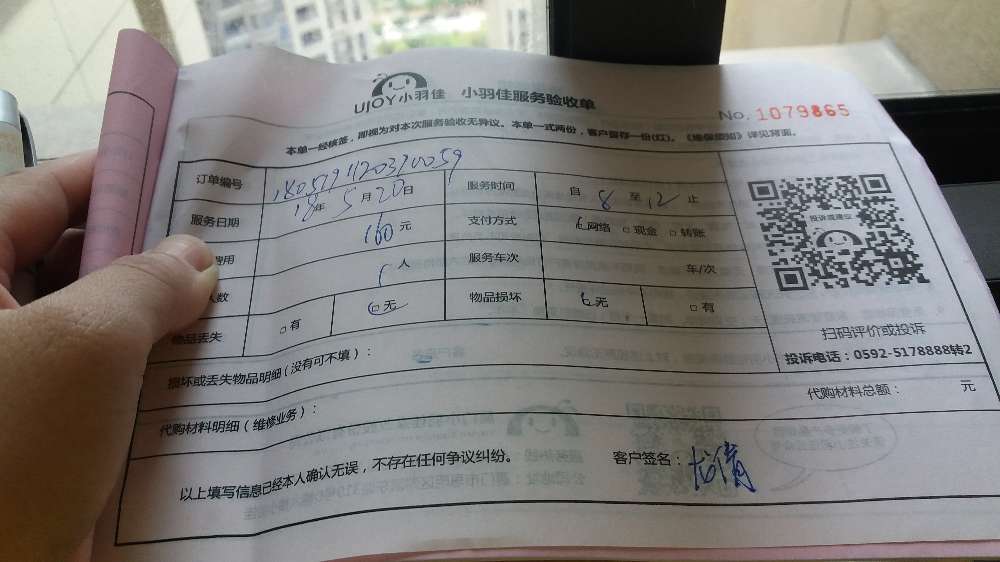 UJOY小羽佳 小羽佳服务验收单
No. 1079865
本单一经核签，即视为对本次服务验收无异议。本单一式两份，客户留存一份(红)。《维保须知》详见背面。
订单编号 1805191120370059 服务时间 自 8 至 12 止
服务日期 18年 5月20日 支付方式 网络 □现金 □转账
费用 160元 服务车次 车/次
人数 1人 物品损坏 无 □有
物品丢失 □有 无
投诉或建议
扫码评价或投诉
投诉电话：0592-5178888转2
损坏或丢失物品明细(没有可不填)：
代购材料明细(维修业务)： 代购材料总额： 元
以上填写信息已经本人确认无误，不存在任何争议纠纷。 客户签名：